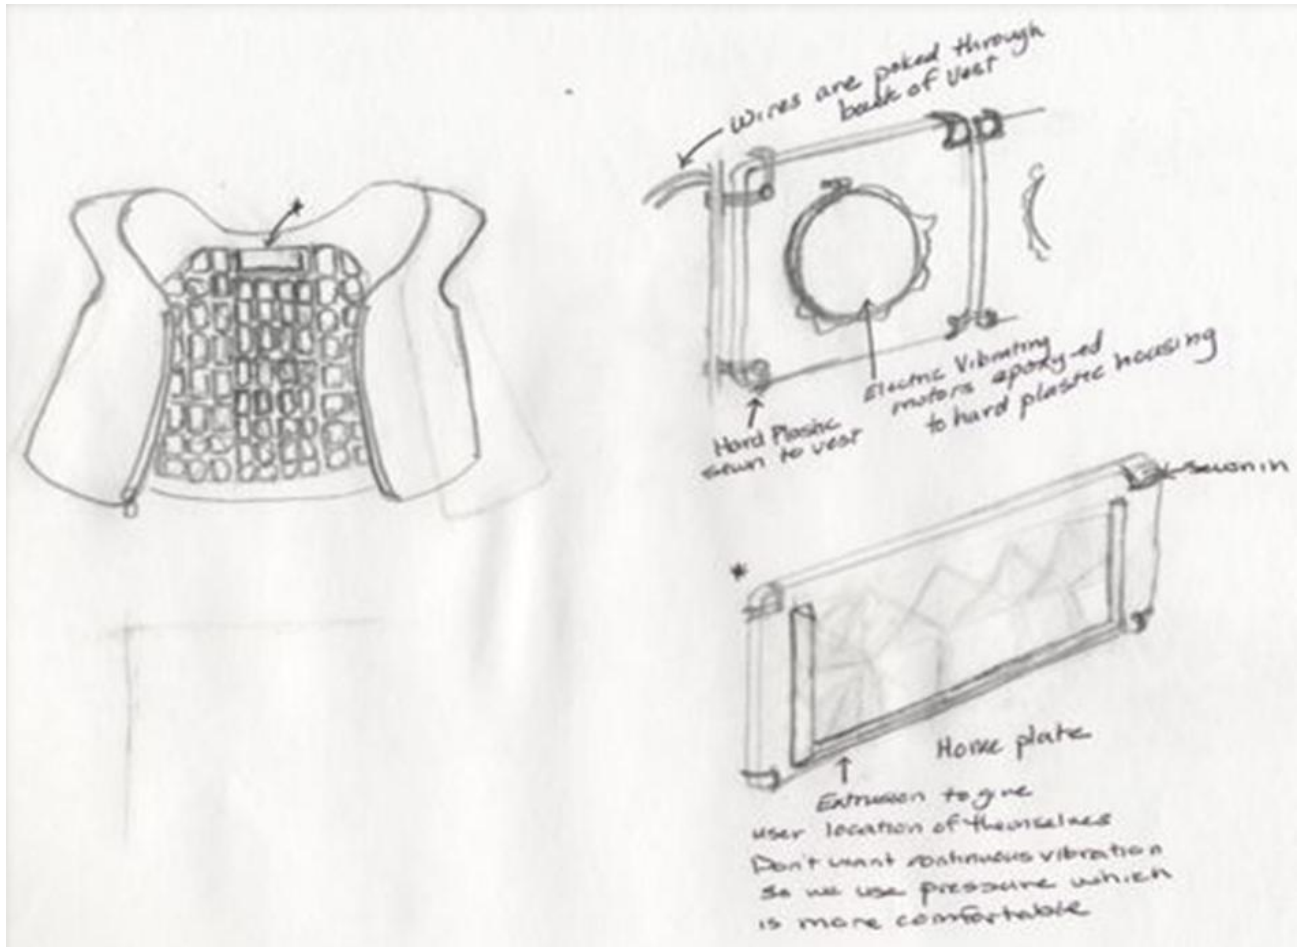 Wires are poked through
back of vest
Electric Vibrating
motors epoxy-ed
to hard plastic housing
Hard Plastic
sewn to vest
sewn in
*
*
Home plate
Extrusion to give
user location of themselves
Don't want continuous vibration
so we use pressure which
is more comfortable